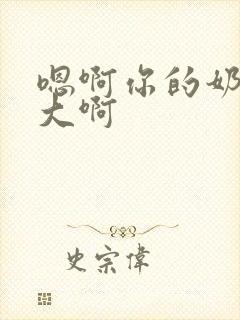 嗯啊你的奶
大啊
史宗偉